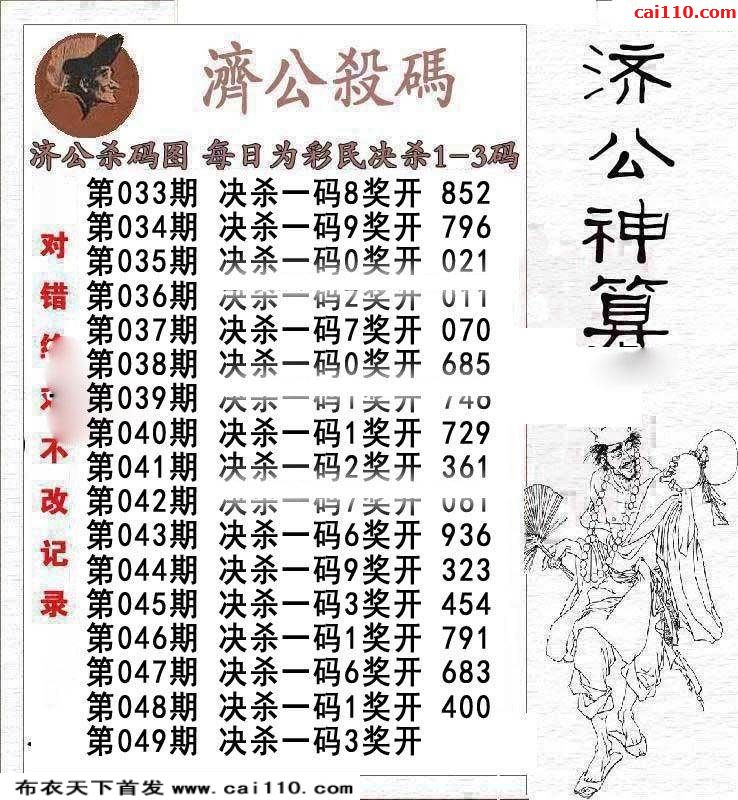 cai110.com
濟公殺碼
济公杀码图 每日为彩民决杀1-3码
第033期 决杀一码8奖开 852
第034期 决杀一码9奖开 796
第035期 决杀一码0奖开 021
第036期 决杀一码2奖开 011
第037期 决杀一码7奖开 070
第038期 决杀一码0奖开 685
第039期 决杀一码1奖开
第040期 决杀一码1奖开 729
第041期 决杀一码2奖开 361
第042期 决杀一码7奖开
第043期 决杀一码6奖开 936
第044期 决杀一码9奖开 323
第045期 决杀一码3奖开 454
第046期 决杀一码1奖开 791
第047期 决杀一码6奖开 683
第048期 决杀一码1奖开 400
第049期 决杀一码3奖开
对错
不改记录
济公神算
布衣天下首发 www.cai110.com